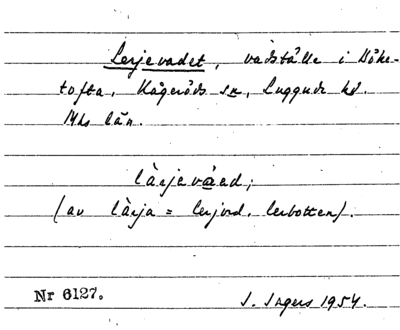 Lerjevadet, vadställe i Böke-
tofta, Kågeröds sn, Luggude hd.
Mhs län.
lärjeväad;
(av lärja = lerjord, lerbotten).
Nr 6127.
I. Ingers 1954.